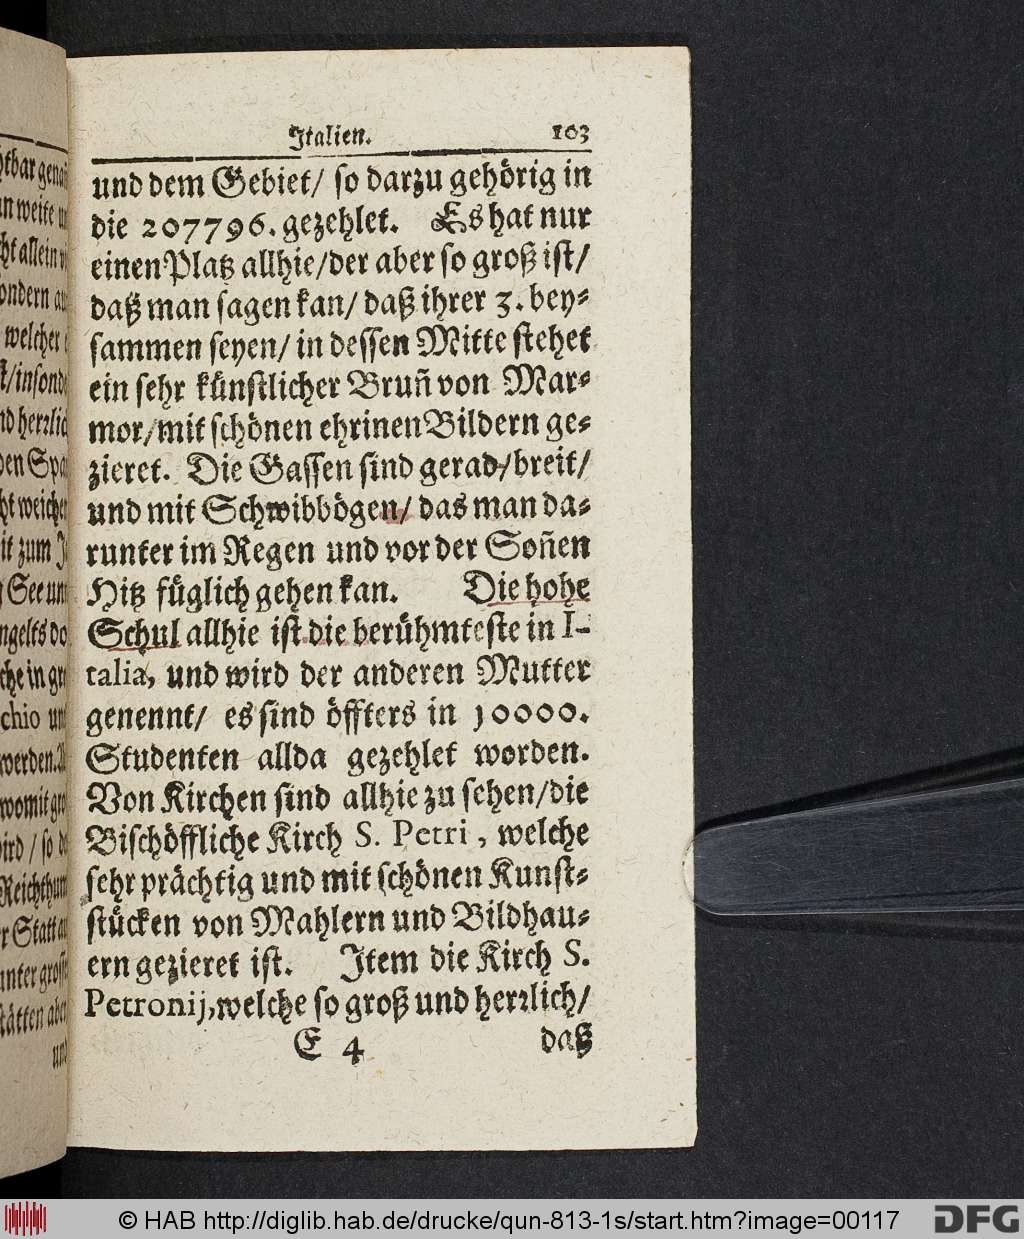 Italien. 103
und dem Gebiet/ so darzu gehörig in
die 207796. gezehlet. Es hat nur
einen Platz allhie/der aber so groß ist/
daß man sagen kan/ daß ihrer 3. bey⸗
sammen seyen/ in dessen Mitte stehet
ein sehr künstlicher Bruñ von Mar⸗
mor/mit schönen ehrinen Bildern ge⸗
zieret. Die Gassen sind gerad/breit/
und mit Schwibbögen/ das man da⸗
runter im Regen und vor der Soñen
Hitz füglich gehen kan. Die hohe
Schul allhie ist die berühmteste in I-
talia, und wird der anderen Mutter
genennt/ es sind öffters in 10000.
Studenten allda gezehlet worden.
Von Kirchen sind allhie zu sehen/die
Bischöffliche Kirch S. Petri, welche
sehr prächtig und mit schönen Kunst⸗
stücken von Mahlern und Bildhau⸗
ern gezieret ist. Item die Kirch S.
Petronij, welche so groß und herrlich/
E 4 daß
© HAB http://diglib.hab.de/drucke/qun-813-1s/start.htm?image=00117
DFG